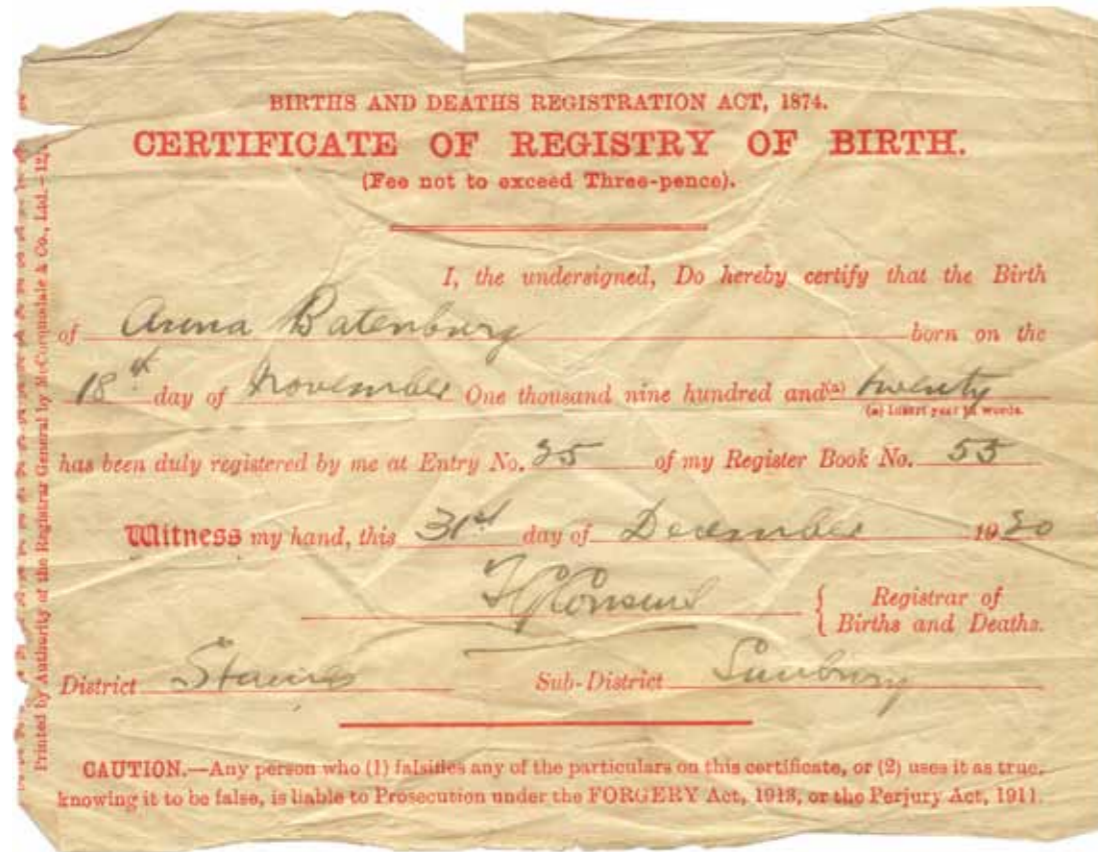 BIRTHS AND DEATHS REGISTRATION ACT, 1874.
CERTIFICATE OF REGISTRY OF BIRTH.
(Fee not to exceed Three-pence).
I, the undersigned, Do hereby certify that the Birth
of Anna Batenburg born on the
18th day of November One thousand nine hundred and(a) twenty
(a) Insert year in words.
has been duly registered by me at Entry No. 35 of my Register Book No. 55
Witness my hand, this 31st day of December 1920
Registrar of
Births and Deaths.
District Staines Sub-District Sunbury
CAUTION.—Any person who (1) falsifies any of the particulars on this certificate, or (2) uses it as true,
knowing it to be false, is liable to Prosecution under the FORGERY Act, 1913, or the Perjury Act, 1911.
Printed by Authority of the Registrar General by McCorquodale & Co., Ltd.—12,